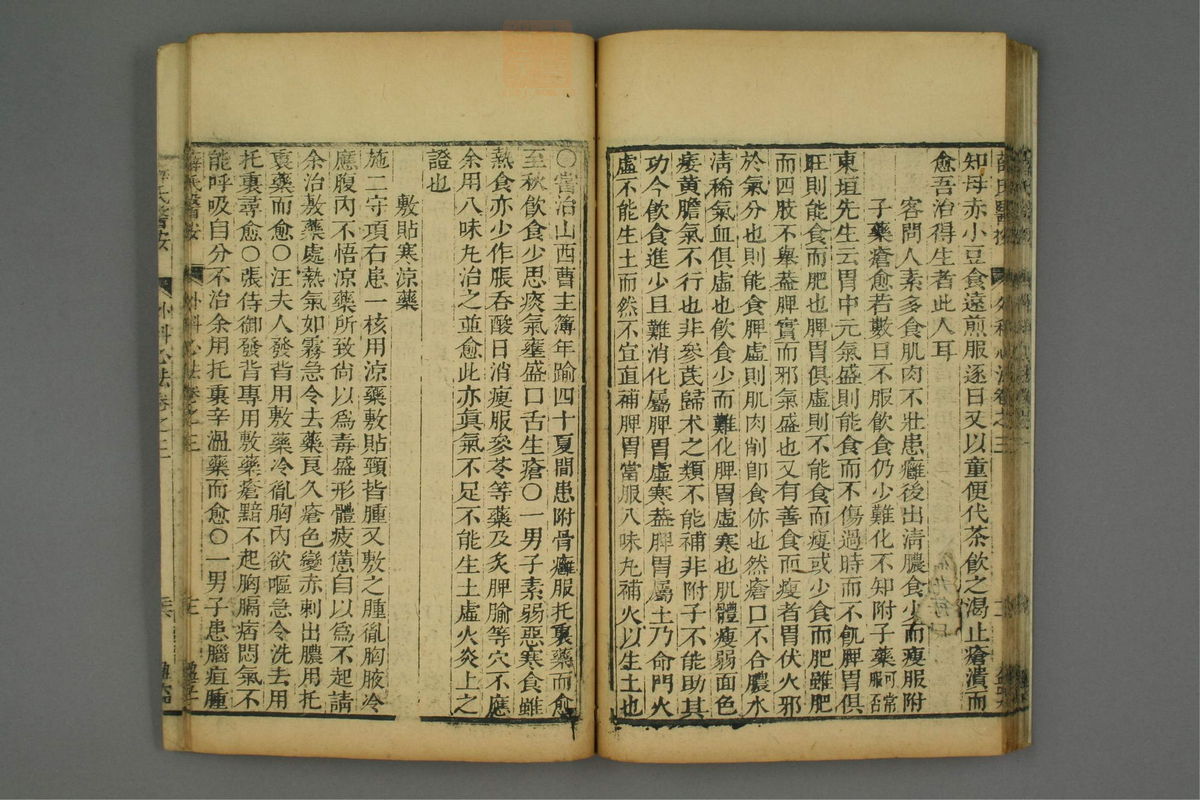 薛氏醫按 外科心法卷之三
知母赤小豆食遠煎服逐日又以童便代茶飲之渴止瘡潰而
愈吾治得生者此人耳
客問人素多食肌肉不壯患癰後出清膿食少而瘦服附
子藥瘡愈若數日不服飲食仍少難化不知附子藥可常服否
東垣先生云胃中元氣盛則能食而不傷過時而不飢脾胃俱
旺則能食而肥也脾胃俱虛則不能食而瘦或少食而肥雖肥
而四肢不舉蓋脾實而邪氣盛也又有善食而瘦者胃伏火邪
於氣分也則能食脾虛則肌肉削卽食㑊也然瘡口不合膿水
清稀氣血俱虛也飲食少而難化脾胃虛寒也肌體瘦弱面色
痿黃膽氣不行也非參芪歸术之類不能補非附子不能助其
功今飲食進少且難消化屬脾胃虛寒蓋脾胃屬土乃命門火
虛不能生土而然不宜直補脾胃當服八味丸補火以生土也
〇嘗治山西曹主簿年踰四十夏間患附骨癰服托裏藥而愈
至秋飲食少思痰氣壅盛口舌生瘡〇一男子素弱惡寒食雖
熱食亦少作脹吞酸日消瘦服參苓等藥及炙脾腧等穴不應
余用八味丸治之並愈此亦眞氣不足不能生土虛火炎上之
證也
敷貼寒涼藥
施二守項右患一核用涼藥敷貼頸皆腫又敷之腫胤胸腋冷
應腹內不悟涼藥所致尙以爲毒盛形體疲憊自以爲不起請
余治敷藥處熱氣如霧急令去藥良久瘡色變赤刺出膿用托
裏藥而愈〇汪夫人發背用敷藥冷胤胸內欲嘔急令洗去用
托裏尋愈〇張侍御發背專用敷藥瘡黯不起胸膈痞悶氣不
能呼吸自分不治余用托裏辛溫藥而愈〇一男子患腦疽腫
薛氏醫按 外科心法卷之三